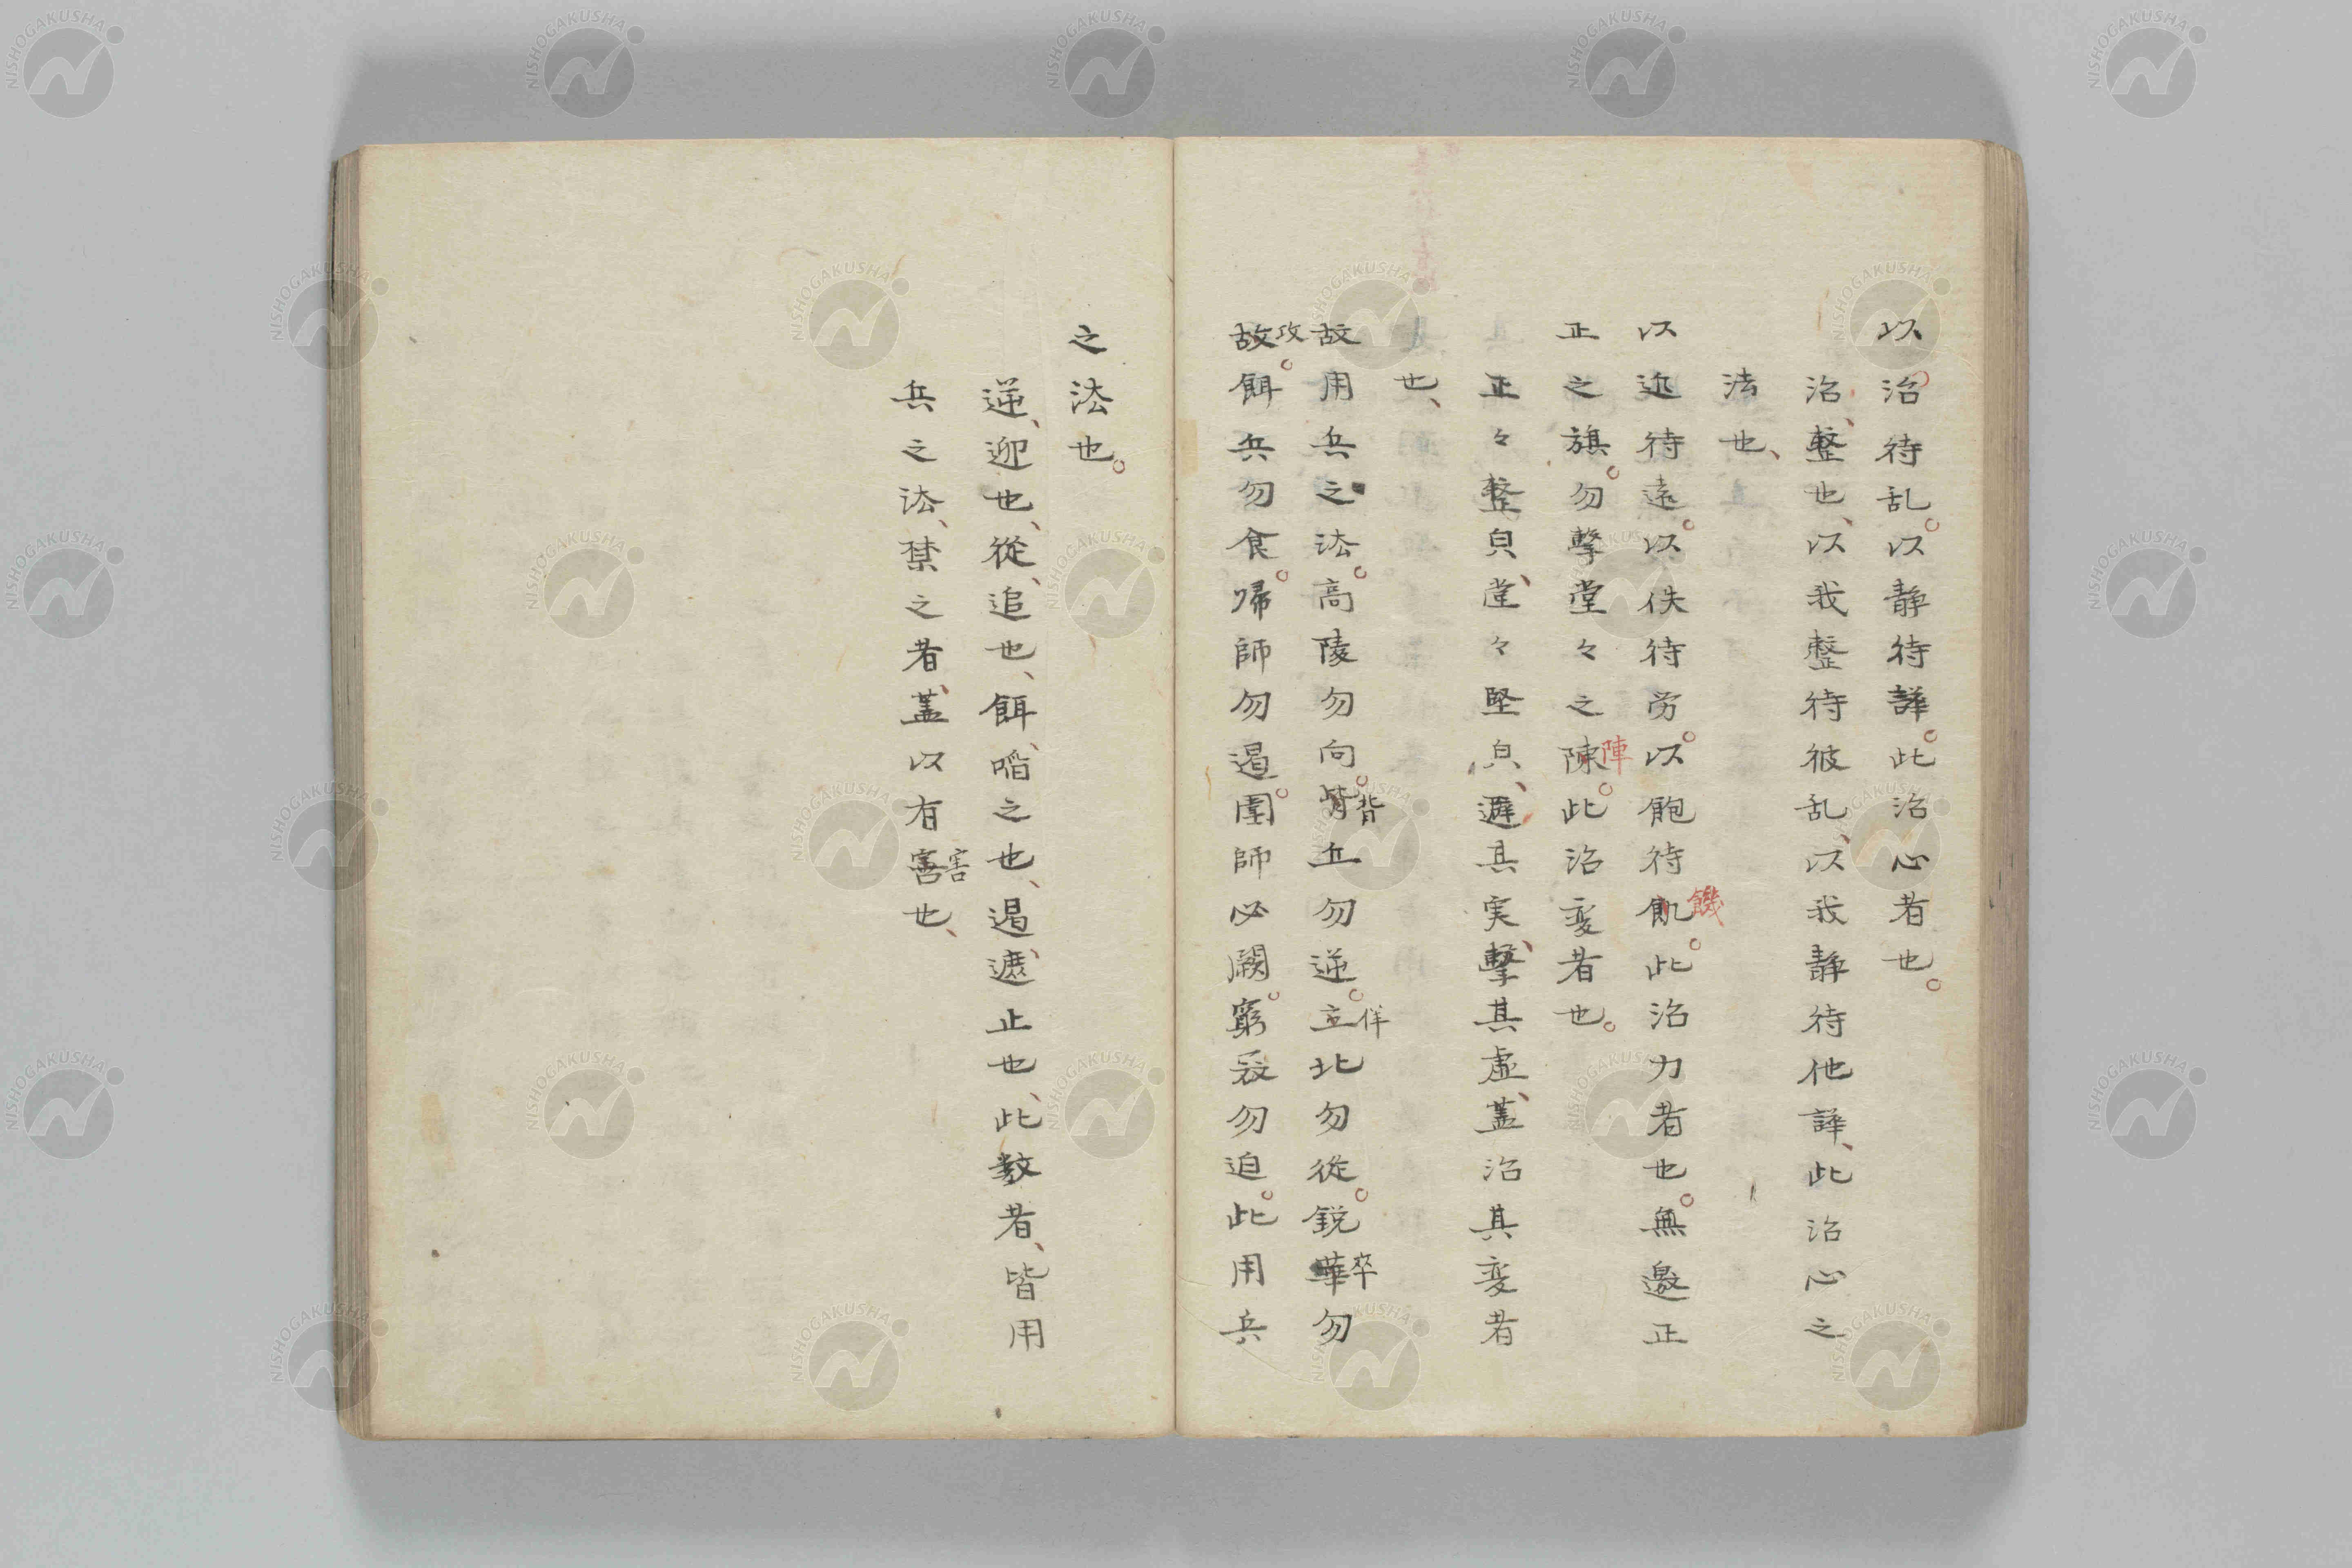 以治待乱。以静待譁。此治心者也。
治、整也、以我整待彼乱、以我静待他譁、此治心之
法也、
以近待遠。以佚待労。以飽待飢。此治力者也。無邀正
饑
正之旗。勿撃堂々之陳。此治変者也。
陣
正々整皃、堂々堅皃、避其実、撃其虚、蓋治其変者
也、
故用兵之法。高陵勿向。背丘勿逆。立北勿従。鋭華勿
背
佯
卒
攻
故。餌兵勿食。帰師勿遏。圍師必闕。窮㓂勿迫。此用兵
之法也。
逆、迎也、従、追也、餌、啗之也、遏、遮止也、此数者、皆用
兵之法、禁之者、蓋以有害也、
害